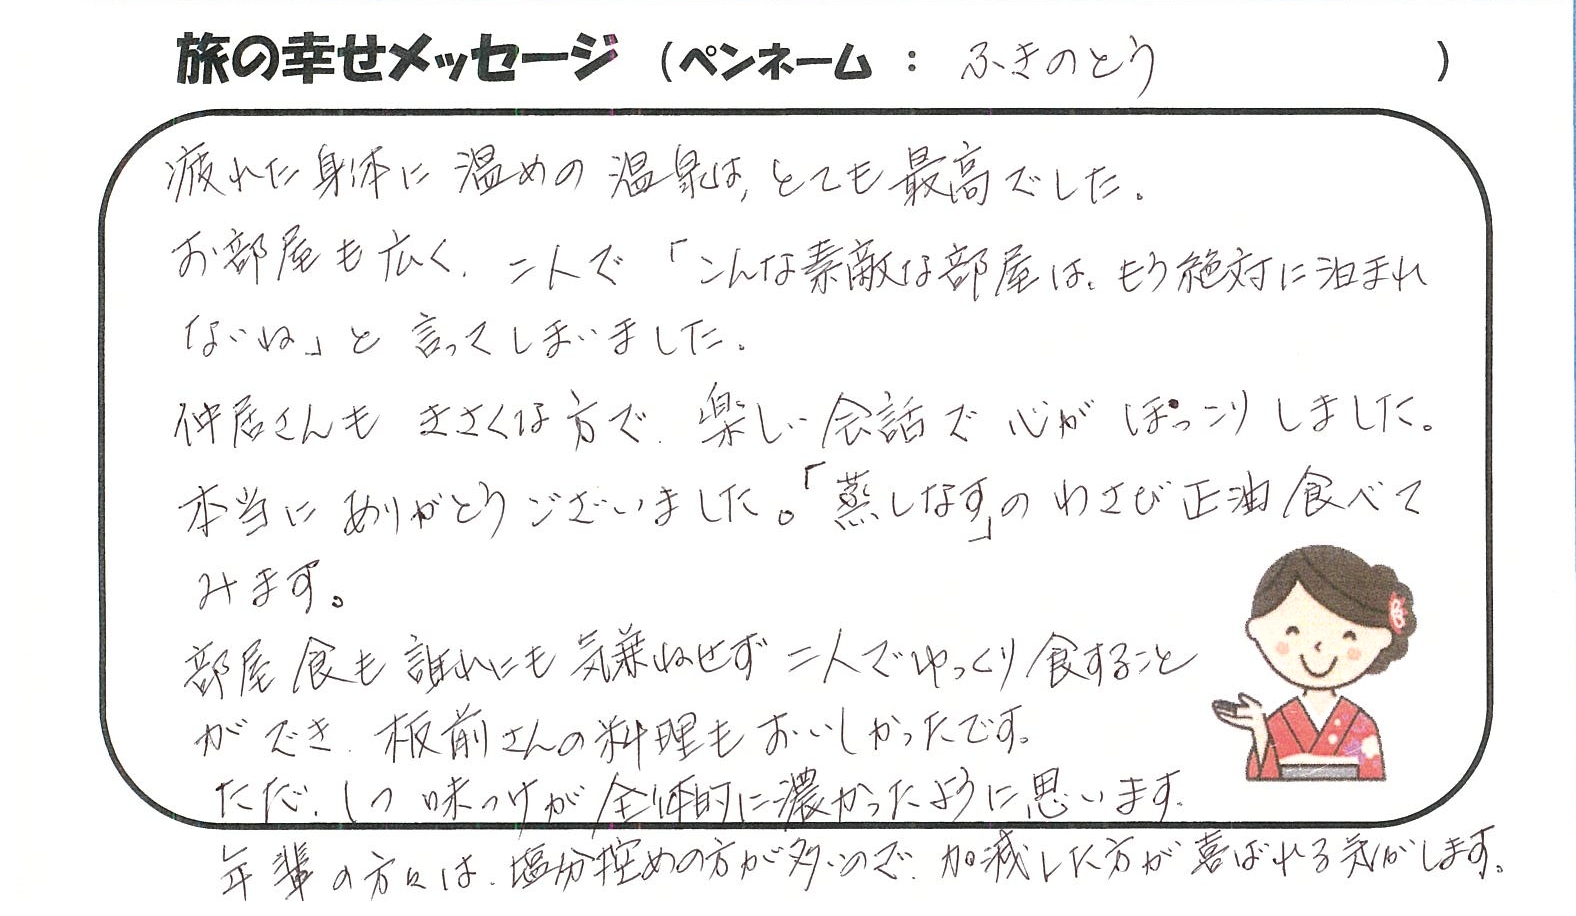 旅の幸せメッセージ (ペンネーム : ふきのとう )
疲れた身体に温めの温泉は、とても最高でした。
お部屋も広く、二人で「こんな素敵な部屋は、もう絶対に泊まれ
ないね」と言ってしまいました。
仲居さんもきさくな方で、楽しい会話で心がほっこりしました。
本当にありがとうございました。「蒸しなす」のわさび正油食べて
みます。
部屋食も誰れにも気兼ねせず二人でゆっくり食すること
ができ、板前さんの料理もおいしかったです。
ただ、1つ味つけが全体的に濃かったように思います。
年輩の方々は、塩分控めの方が多いので、加減した方が喜ばれる気がします。